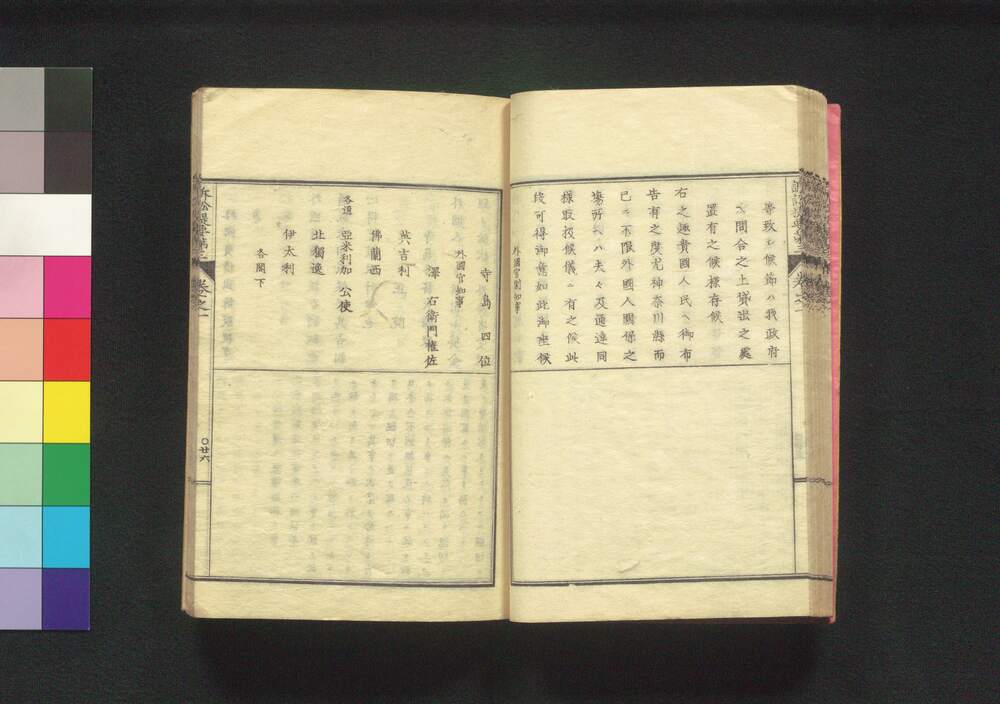 書致シ候節ハ我政府
ヘ問合之上貸出之處
置有之候樣存候
右之趣貴國人民ヘ御布
告有之度尤神奈川縣而
已ニ不限外國人關係之
場所ハ夫々及通達同
樣取扱候儀ニ有之候此
段可得御意如此御座候
外國官副知事
寺島四位
外國官知事
澤右衛門權佐
英吉利
佛蘭西
各通 亞米利加 公使
北獨逸
伊太利
各閣下
卷之一
〇廿六